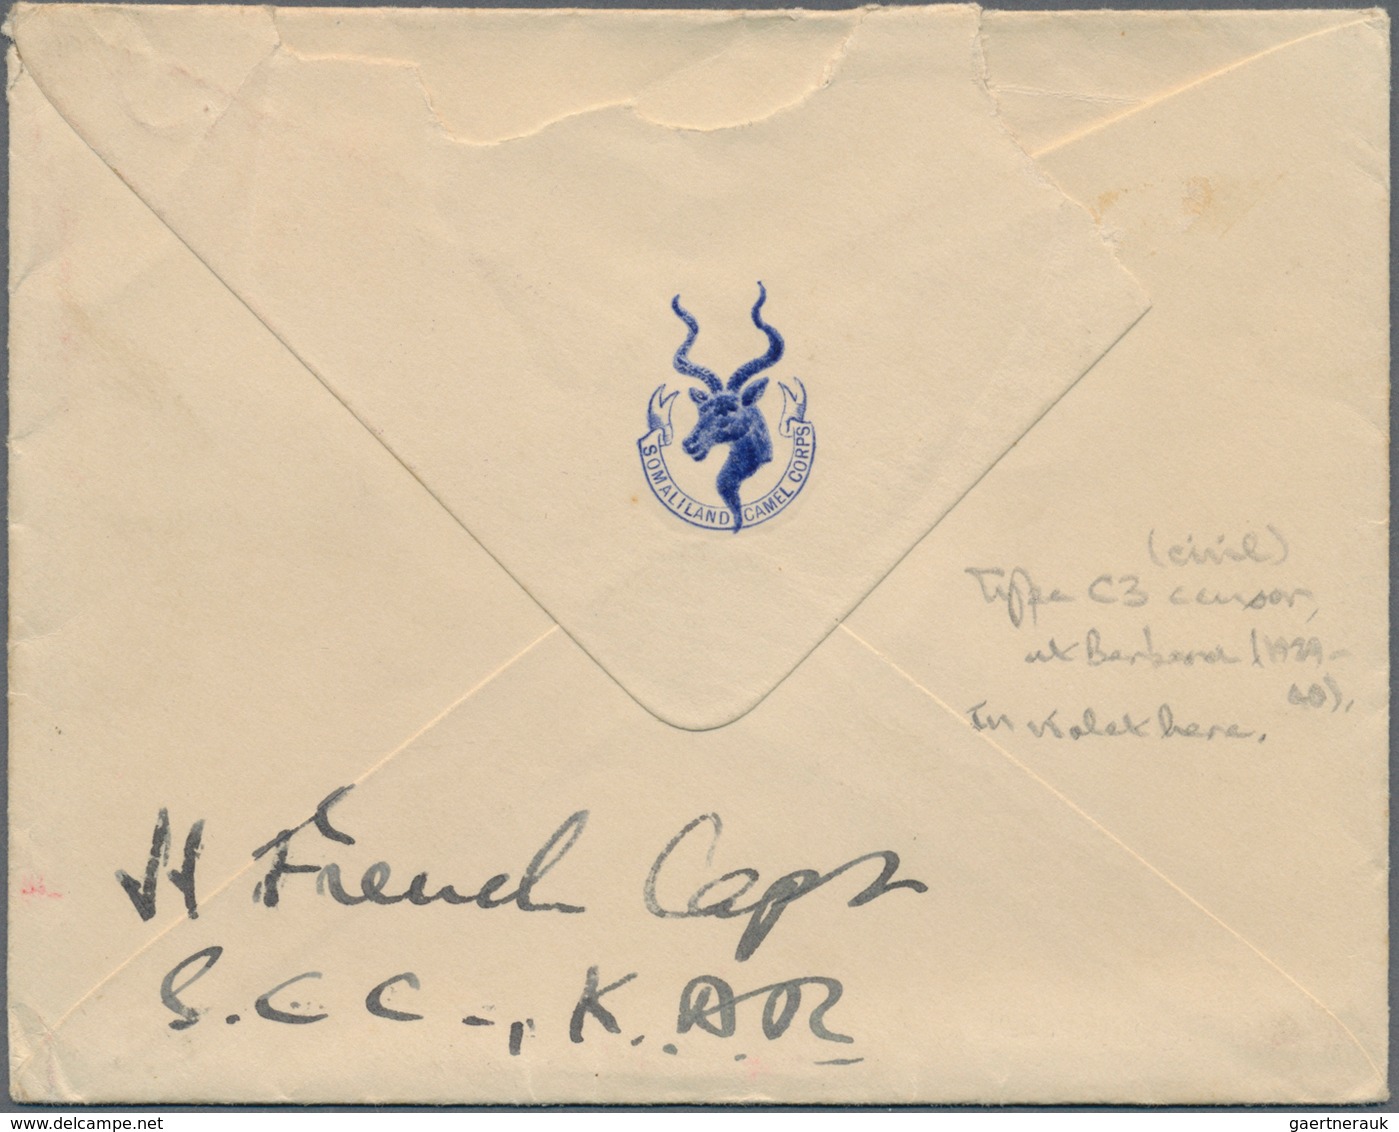 SOMALILAND CAMEL CORPS
(civil)
Type C3 censor,
at Berbera (1939-
40),
in violet here.
H French Capt
S.C.C., K.A.R
delcampe.net
gaertnerauk